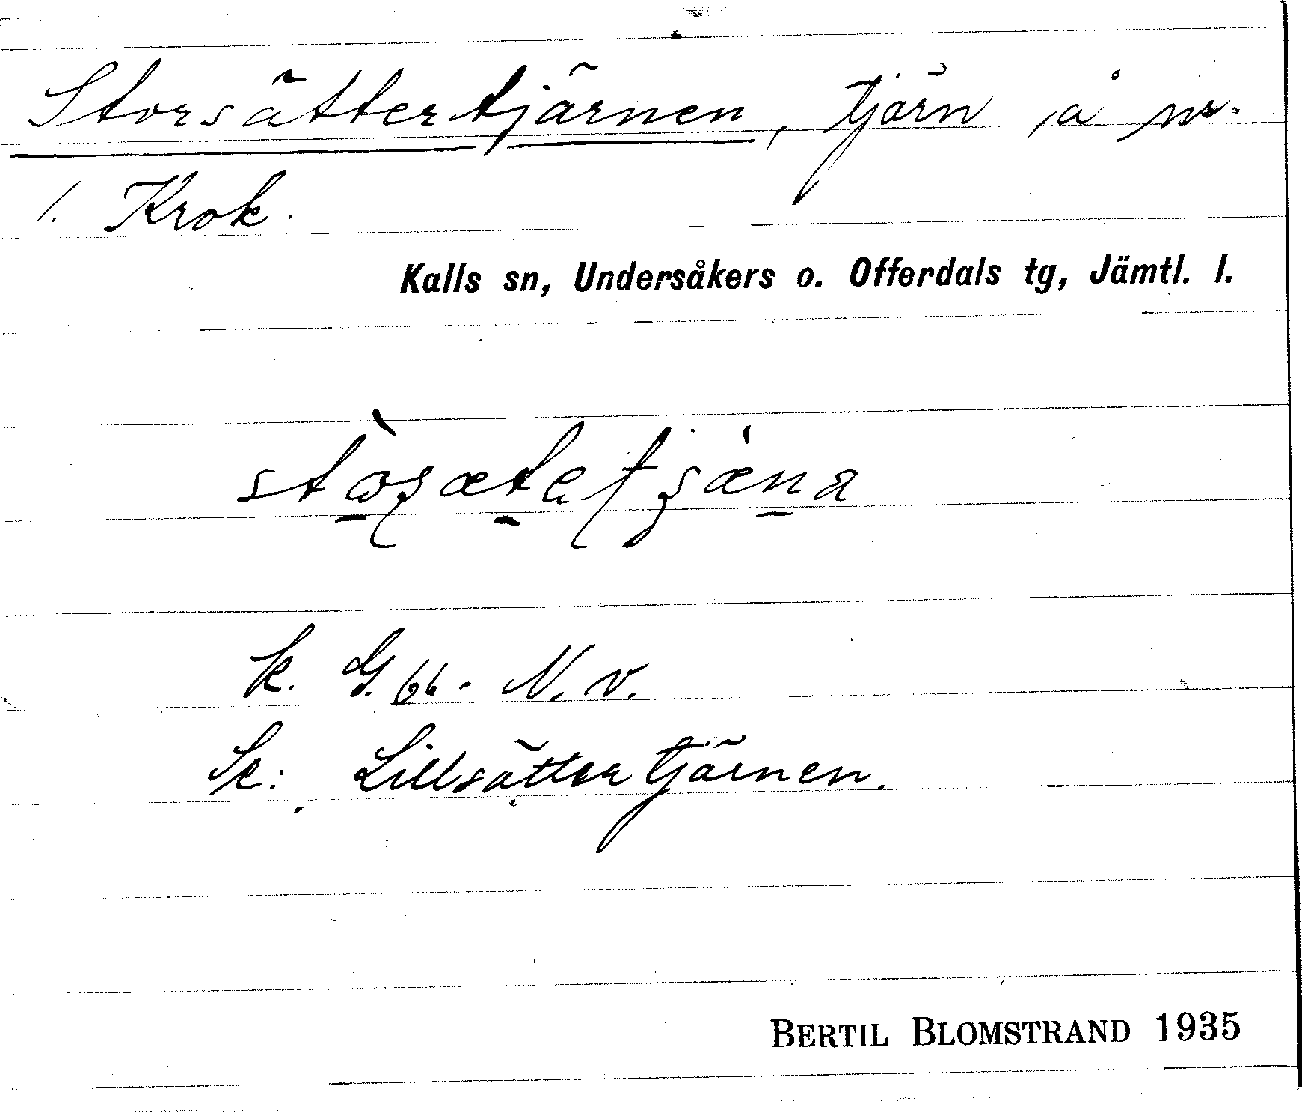 Storsättertjärnen, tjärn å nr.
1. Krok.
Kalls sn, Undersåkers o. Offerdals tg, Jämtl. l.
k. G. 66. N. v.
Se: Lillsättertjärnen.
BERTIL BLOMSTRAND 1935